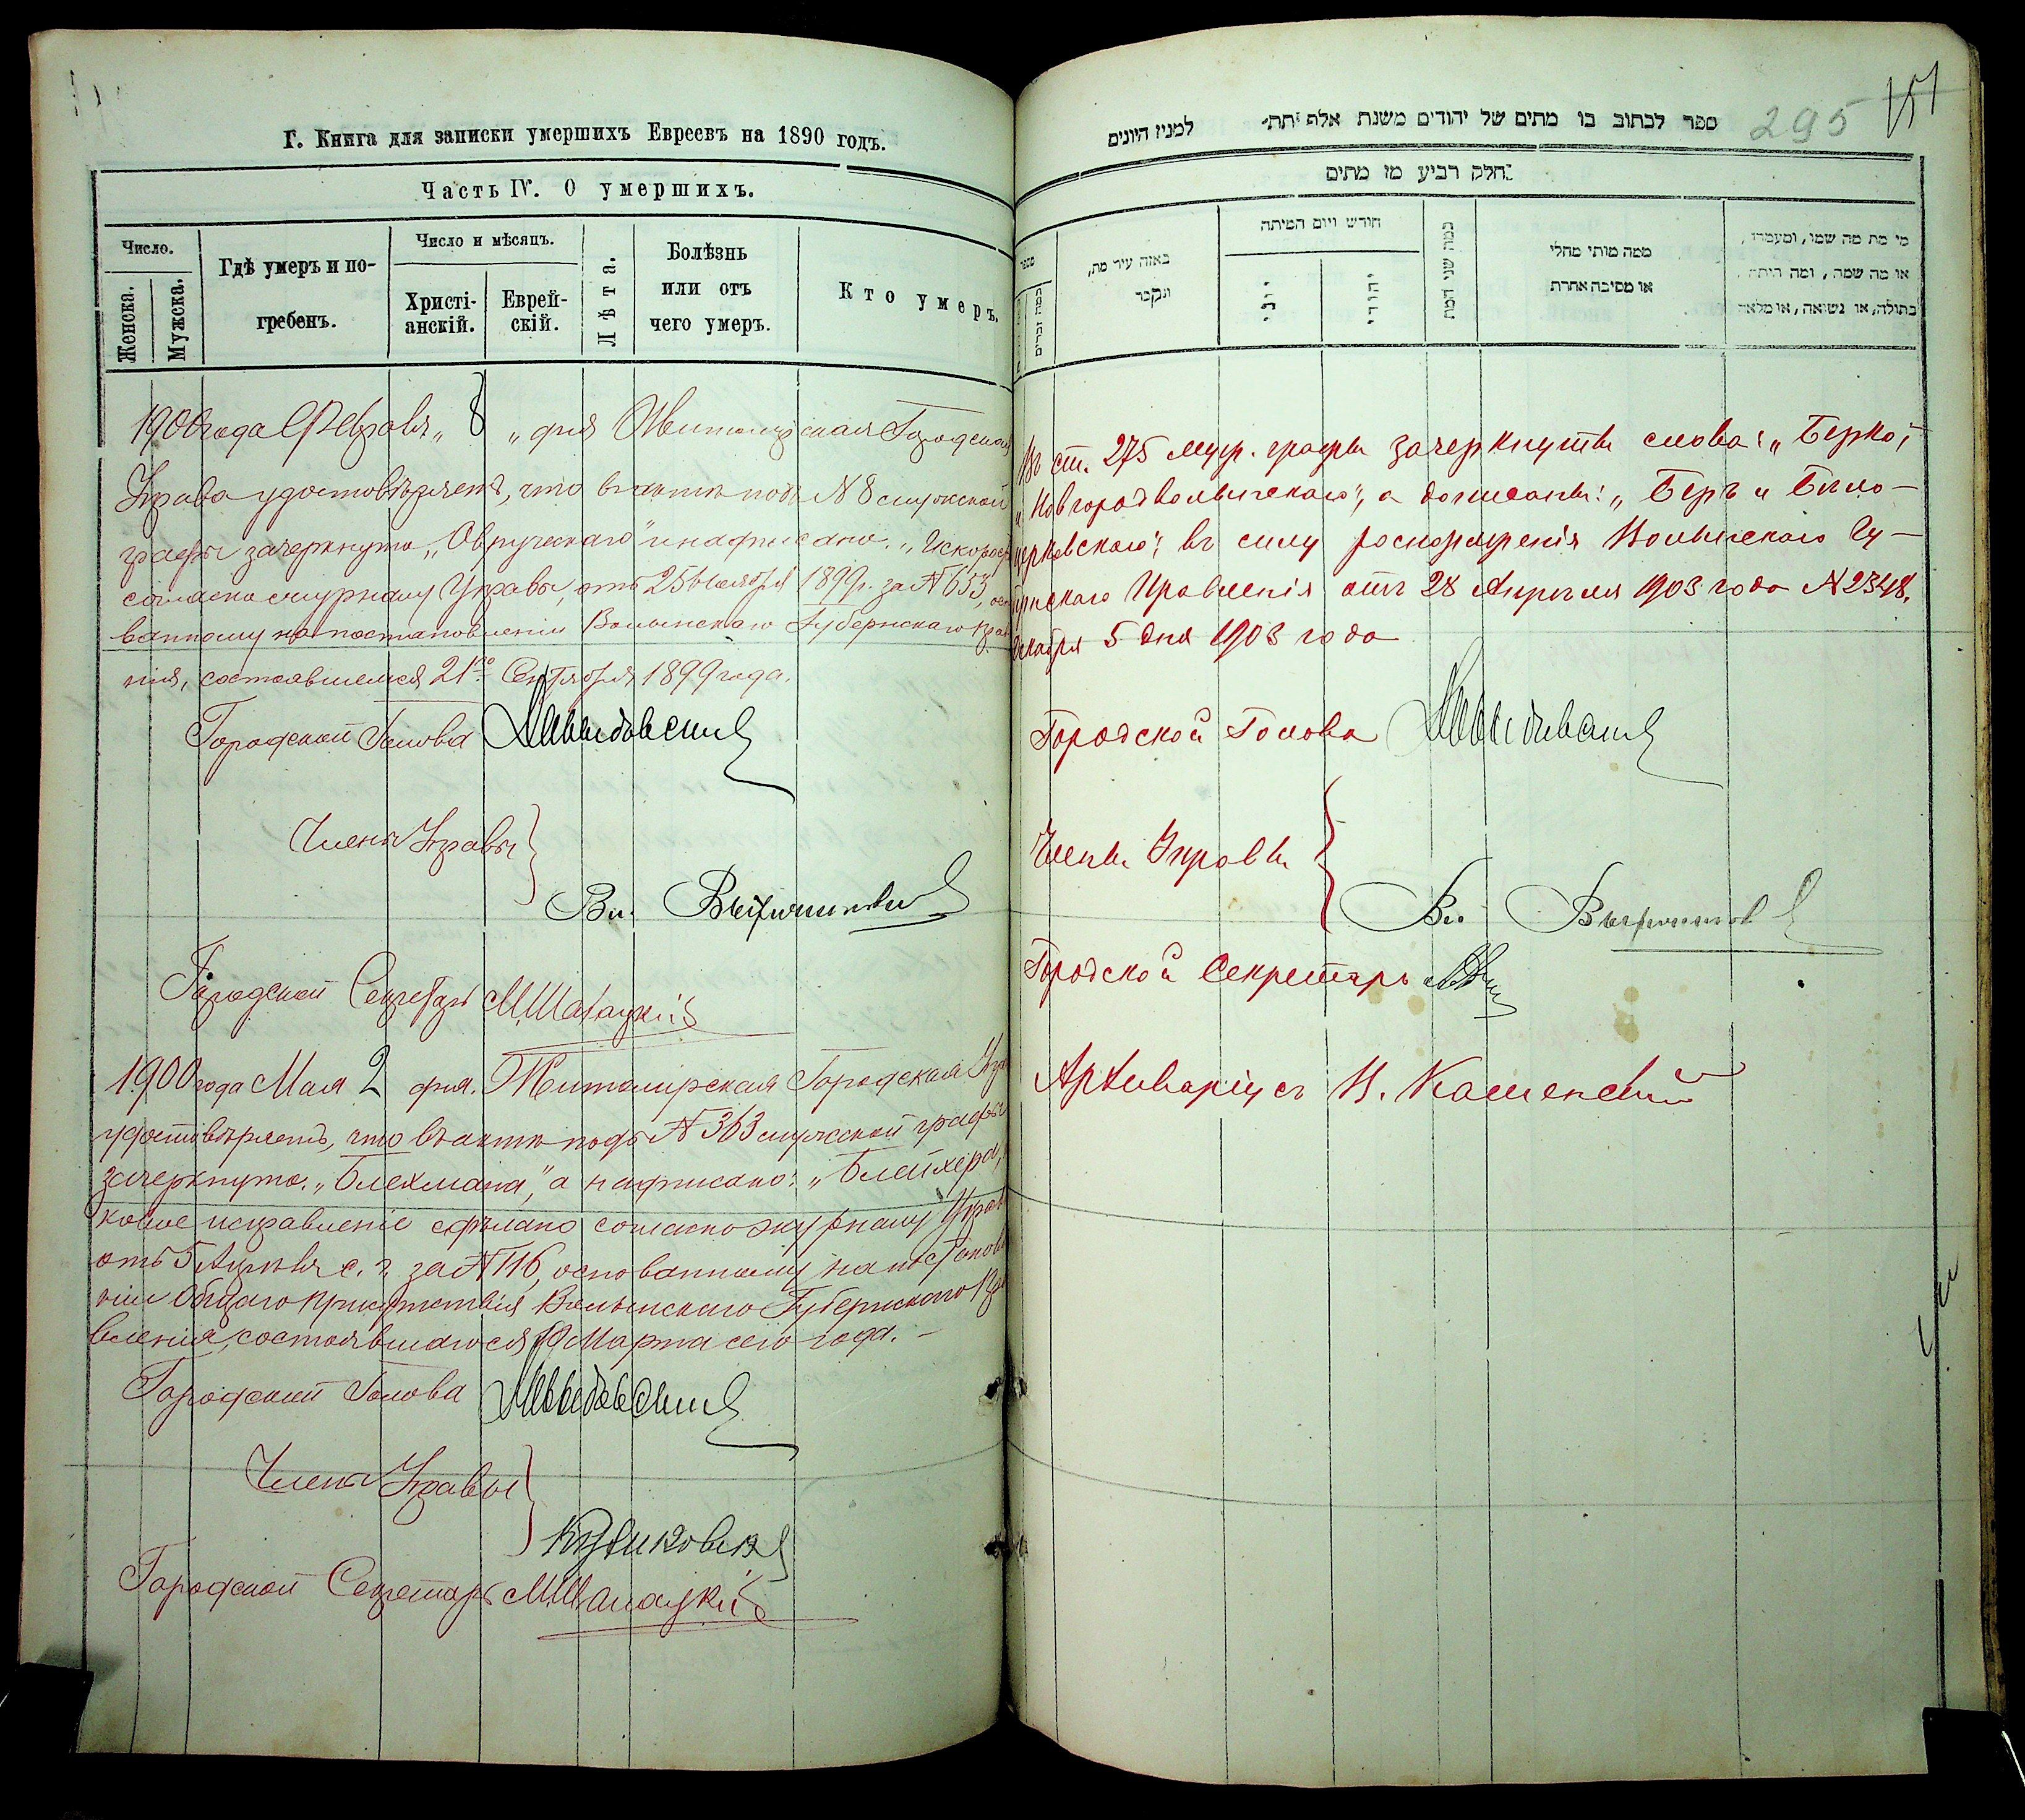 Г. Книга для записки умершихъ Евреевъ на 1890 годъ.
Часть IV. О умершихъ.
Число.
Женска.
Мужска.
Гдѣ умеръ и по-
гребенъ.
Число и мѣсяцъ.
Христі-
анскій.
Еврей-
скій.
Лѣта.
Болѣзнь
или отъ
чего умеръ.
Кто умеръ.
1900 года Февраля „ 8 „ дня Житомірская Городская
Управа удостовѣряетъ, что въ актѣ подъ № 8 мужской
графы зачеркнуто „Овручскаго" и надписано „Искорост
согласно журналу Управы, отъ 25 Ноября 1899 г. за № 653, осно
ванному на постановленіи Волынскаго Губернскаго Прав
нія, состоявшемся 21го Сентября 1899 года.
Городской Голова
Члены Управы
Вл.
Городской Секретарь
1900 года Мая 2 дня. Житомірская Городская Упр
удостовѣряетъ, что въ актѣ подъ № 363 мужской графы
зачеркнуто „Блехмана", а надписано: „Блейхера,
ковое исправленіе сдѣлано согласно журналу Управ
отъ 5 Апрѣля с. г. за № 116, основанному на постановл
ніи Общаго Присутствія Волынскаго Губернскаго Пра
вленія, состоявшагося 10 Марта сего года. –
Городской Голова
Члены Управы
Городской Секретарь
ספר לכתוב בו מתים של יהודים משנת אלף תת׳ למנין היונים
295
151
חלק רביע מן מתים
מספר
באזה עיר מת,
ונקבר
חודש ויום המיתה
יוני
יהודי
כמה שני המת
ממה מותי מחלי
או מסיבה אחרת
מי מת מה שמו, ומעמדו,
או מה שמה, ומה היתה,
בתולה, או נשואה, או מלאה
Въ ст. 275 муж. графы зачеркнуты слова: „Берко,
„Новгородволынскаго", а дописаны: „Беръ и Бѣло–
церковскаго", въ силу распоряженія Волынскаго Гу–
бернскаго Правленія отъ 28 Апрѣля 1903 года № 2348.
Декабря 5 дня 1903 года
Городской Голова
Члены Управы
Вл.
Городской Секретарь
Архиваріусъ Н. Каменскій